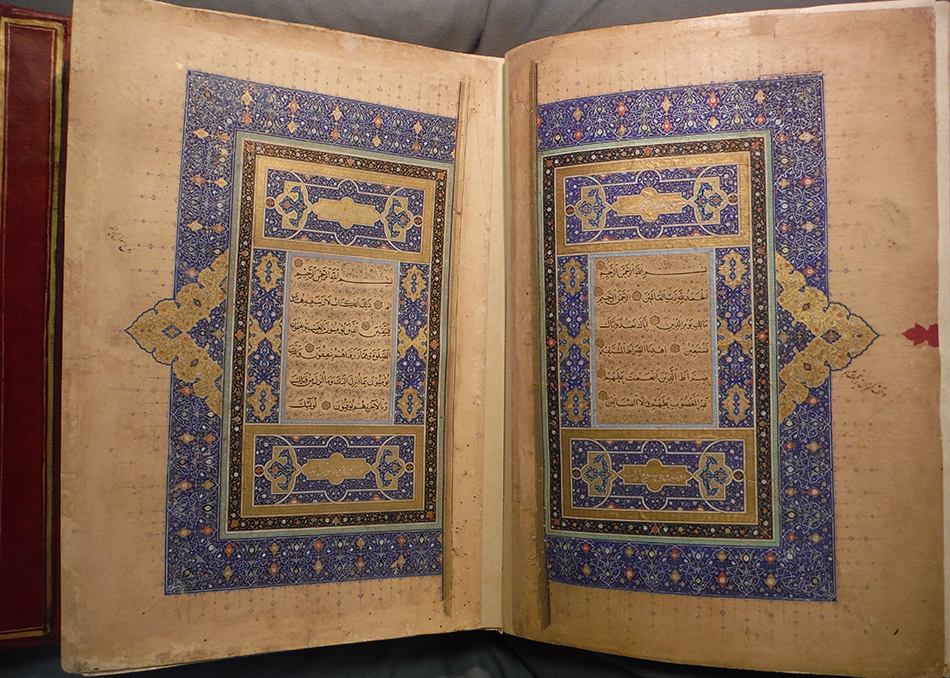 بسم الله الرحمن الرحيم
الحمد لله رب العالمين الرحمن الرحيم
مالك يوم الدين اياك نعبد واياك
نستعين اهدنا الصراط المستقيم
صراط الذين انعمت عليهم
غير المغضوب عليهم ولا الضالين
بسم الله الرحمن الرحيم
الم ذلك الكتاب لا ريب فيه هدى
للمتقين الذين يؤمنون بالغيب ويقيمون
الصلوة ومما رزقناهم ينفقون والذين
يؤمنون بما انزل اليك وما انزل من قبلك
وبالاخرة هم يوقنون اولئك